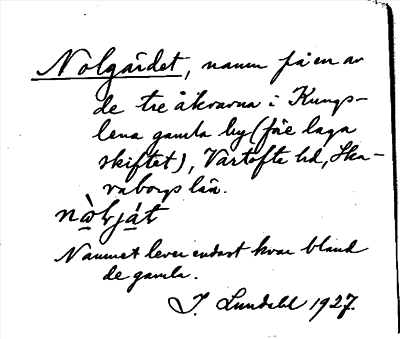 Nolgärdet, namn på en av
de tre åkrarna i Kungs-
lena gamla by (före laga
skiftet), Vartofta hd, Ska-
raborgs län.
Namnet lever endast kvar bland
de gamla.
J. Lundahl 1927.